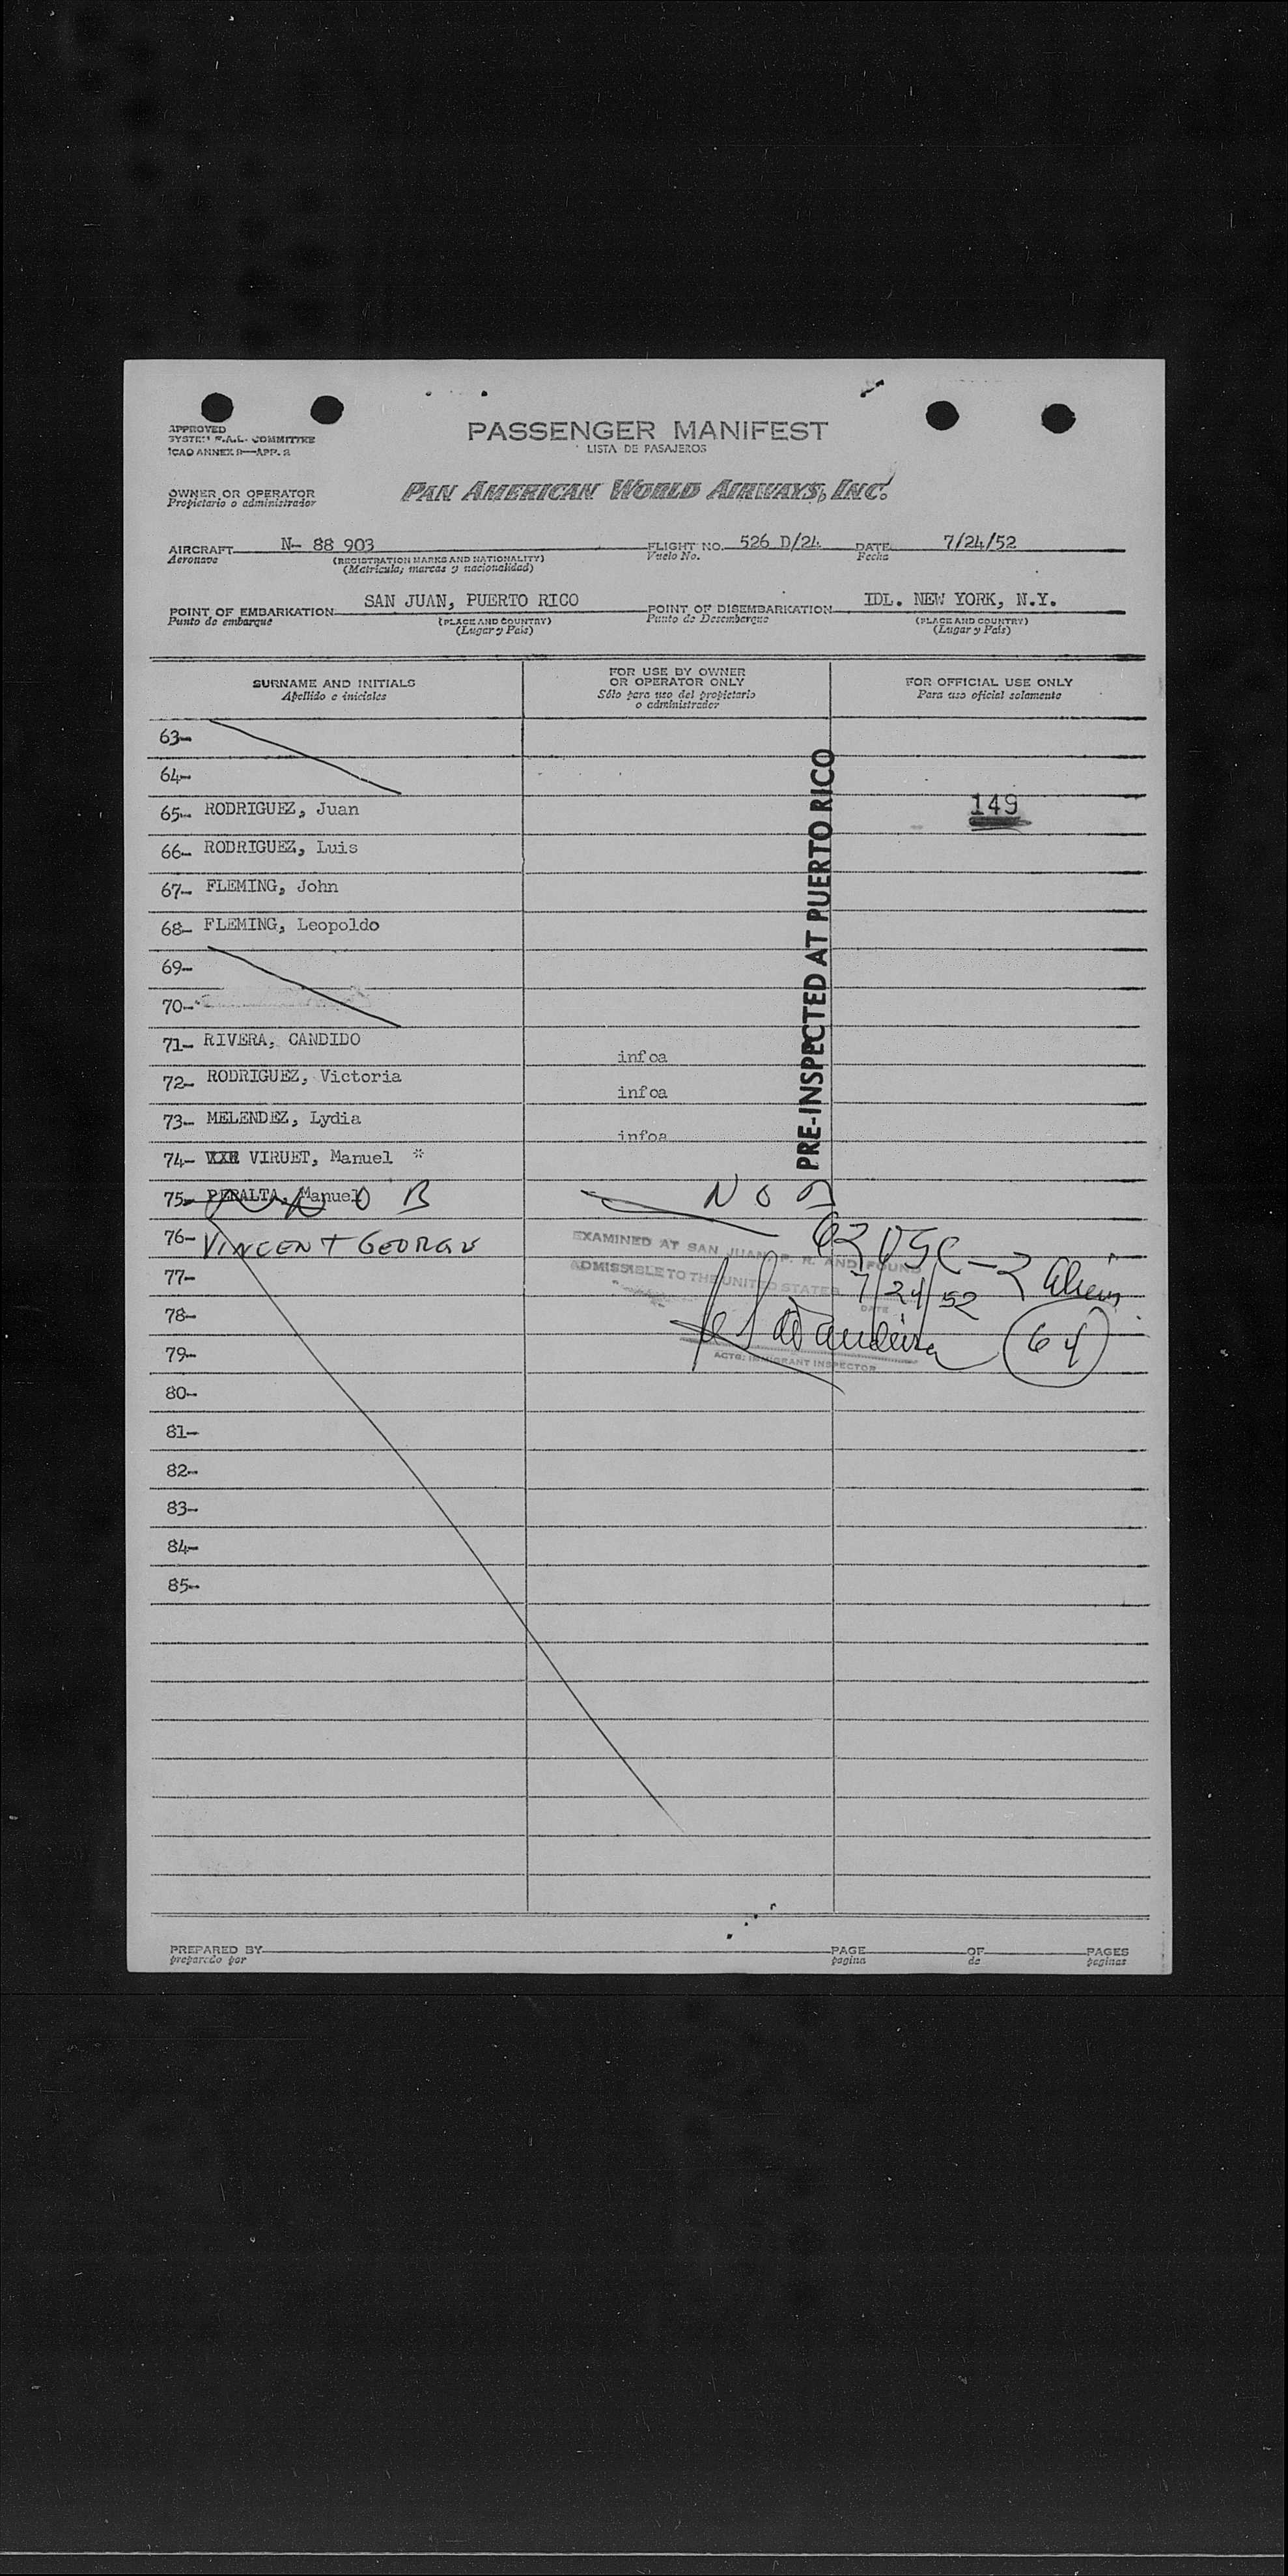 APPROVED
SYSTEM F.A.L. COMMITTEE
ICAO ANNEX 9—APP. 2
PASSENGER MANIFEST
LISTA DE PASAJEROS
OWNER OR OPERATOR
Propietario o administrador
PAN AMERICAN WORLD AIRWAYS, INC.
AIRCRAFT N- 88 903 FLIGHT NO. 526 D/24 DATE 7/24/52
Aeronave (REGISTRATION MARKS AND NATIONALITY) Vuelo No. Fecha
(Matricula, marcas y nacionalidad)
POINT OF EMBARKATION SAN JUAN, PUERTO RICO POINT OF DISEMBARKATION IDL. NEW YORK, N.Y.
Punto de embarque (PLACE AND COUNTRY) Punto de Desembarque (PLACE AND COUNTRY)
(Lugar y País) (Lugar y País)
SURNAME AND INITIALS
Apellido e iniciales
FOR USE BY OWNER
OR OPERATOR ONLY
Sólo para uso del propietario
o administrador
FOR OFFICIAL USE ONLY
Para uso oficial solamente
63-
64-
65- RODRIGUEZ, Juan 149
66- RODRIGUEZ, Luis
67- FLEMING, John
68- FLEMING, Leopoldo
69-
70-
71- RIVERA, CANDIDO infoa
72- RODRIGUEZ, Victoria infoa
73- MELENDEZ, Lydia infoa
74- VIRUET, Manuel *
75- PERALTA, Manuel N O B
76- VINCENT GEORGE
PRE-INSPECTED AT PUERTO RICO
62 USC - 2 Aliens
EXAMINED AT SAN JUAN, P. R. AND FOUND
ADMISSIBLE TO THE UNITED STATES
7/24/52
DATE
64
ACTG. IMMIGRANT INSPECTOR
77-
78-
79-
80-
81-
82-
83-
84-
85-
PREPARED BY PAGE OF PAGES
preparado por pagina de paginas